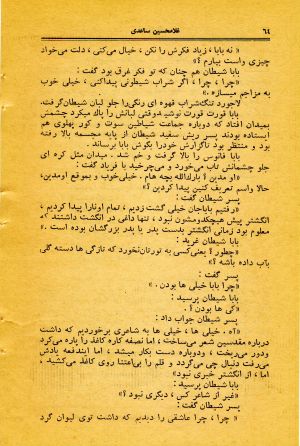 ٦٤
غلامحسین ساعدی
« نه بابا، زیاد فکرش را نکن، خیال می‌کنی، دلت می‌خواد
چیزی واست بیارم ؟»
بابا شیطان هم چنان که تو فکر غرق بود گفت :
« چرا ، چرا ، اگر شراب شیطونی پیداکنی ، خیلی خوب
به مزاجم میسازه .»
لاجورد تنگ شراب قهوه ای رنگی را جلو لبان شیطان گرفت.
بابا قورت قورت نوشید و وقتی لبانش را پاك میکرد چشمش
بمیدان افتاد که دوباره جماعت شیاطین سوت و کور پهلوی هم
ایستاده بودند پسر ریش سفید شیطان از پایه مجسمه بالا رفته
بود و منتظر بود تا گزارش خود را بگوش بابا برساند .
بابا فانوس را بالا گرفت و خم شد . میدان مثل کره ای
جلو چشمانش تاب می‌خورد و می‌چرخید با فریاد گفت :
«اومدین ؟ بارك‌الله بچه هام . خیلی خوب و بموقع اومدین،
حالا واسم تعریف کنین پیدا کردین ؟»
پسر شیطان گفت :
«رفتیم باباجان خیلی گشت زدیم ، تمام اونارا پیدا کردیم ،
انگشتر پیش هیچکدومشون نبود ، تنها داغی در انگشت داشتند که
معلوم بود زمانی انگشتر بدست پدر یا پدر بزرگشان بوده است .»
بابا شیطان غرید :
«چطور ؟ یعنی کسی به تورتان نخورد که تازگی ها دسته گلی
بآب داده باشه ؟»
پسر گفت :
«چرا بابا خیلی ها بودن . »
بابا شیطان پرسید :
« کی ها بودن ؟»
پسر شیطان جواب داد :
«آه . خیلی ها ، خیلی ها به شاعری برخوردیم که داشت
درباره مقدسین شعر می‌ساخت ، اما نصفه کاره کاغذ را پاره می‌کرد
ودور می‌ریخت ، ودوباره دست بکار میشد ، اما ایندفعه یادش
می‌رفت دنبال چی می‌گردد و قلم را بی‌اعتنا روی کاغذ می‌کشید .
اما ، از انگشتر خبری نبود»
بابا شیطان پرسید :
«غیر از شاعر کس ، دیگری نبود ؟»
پسر شیطان گفت :
« چرا ، چرا عاشقی را دیدیم که داشت توی لیوان گرد